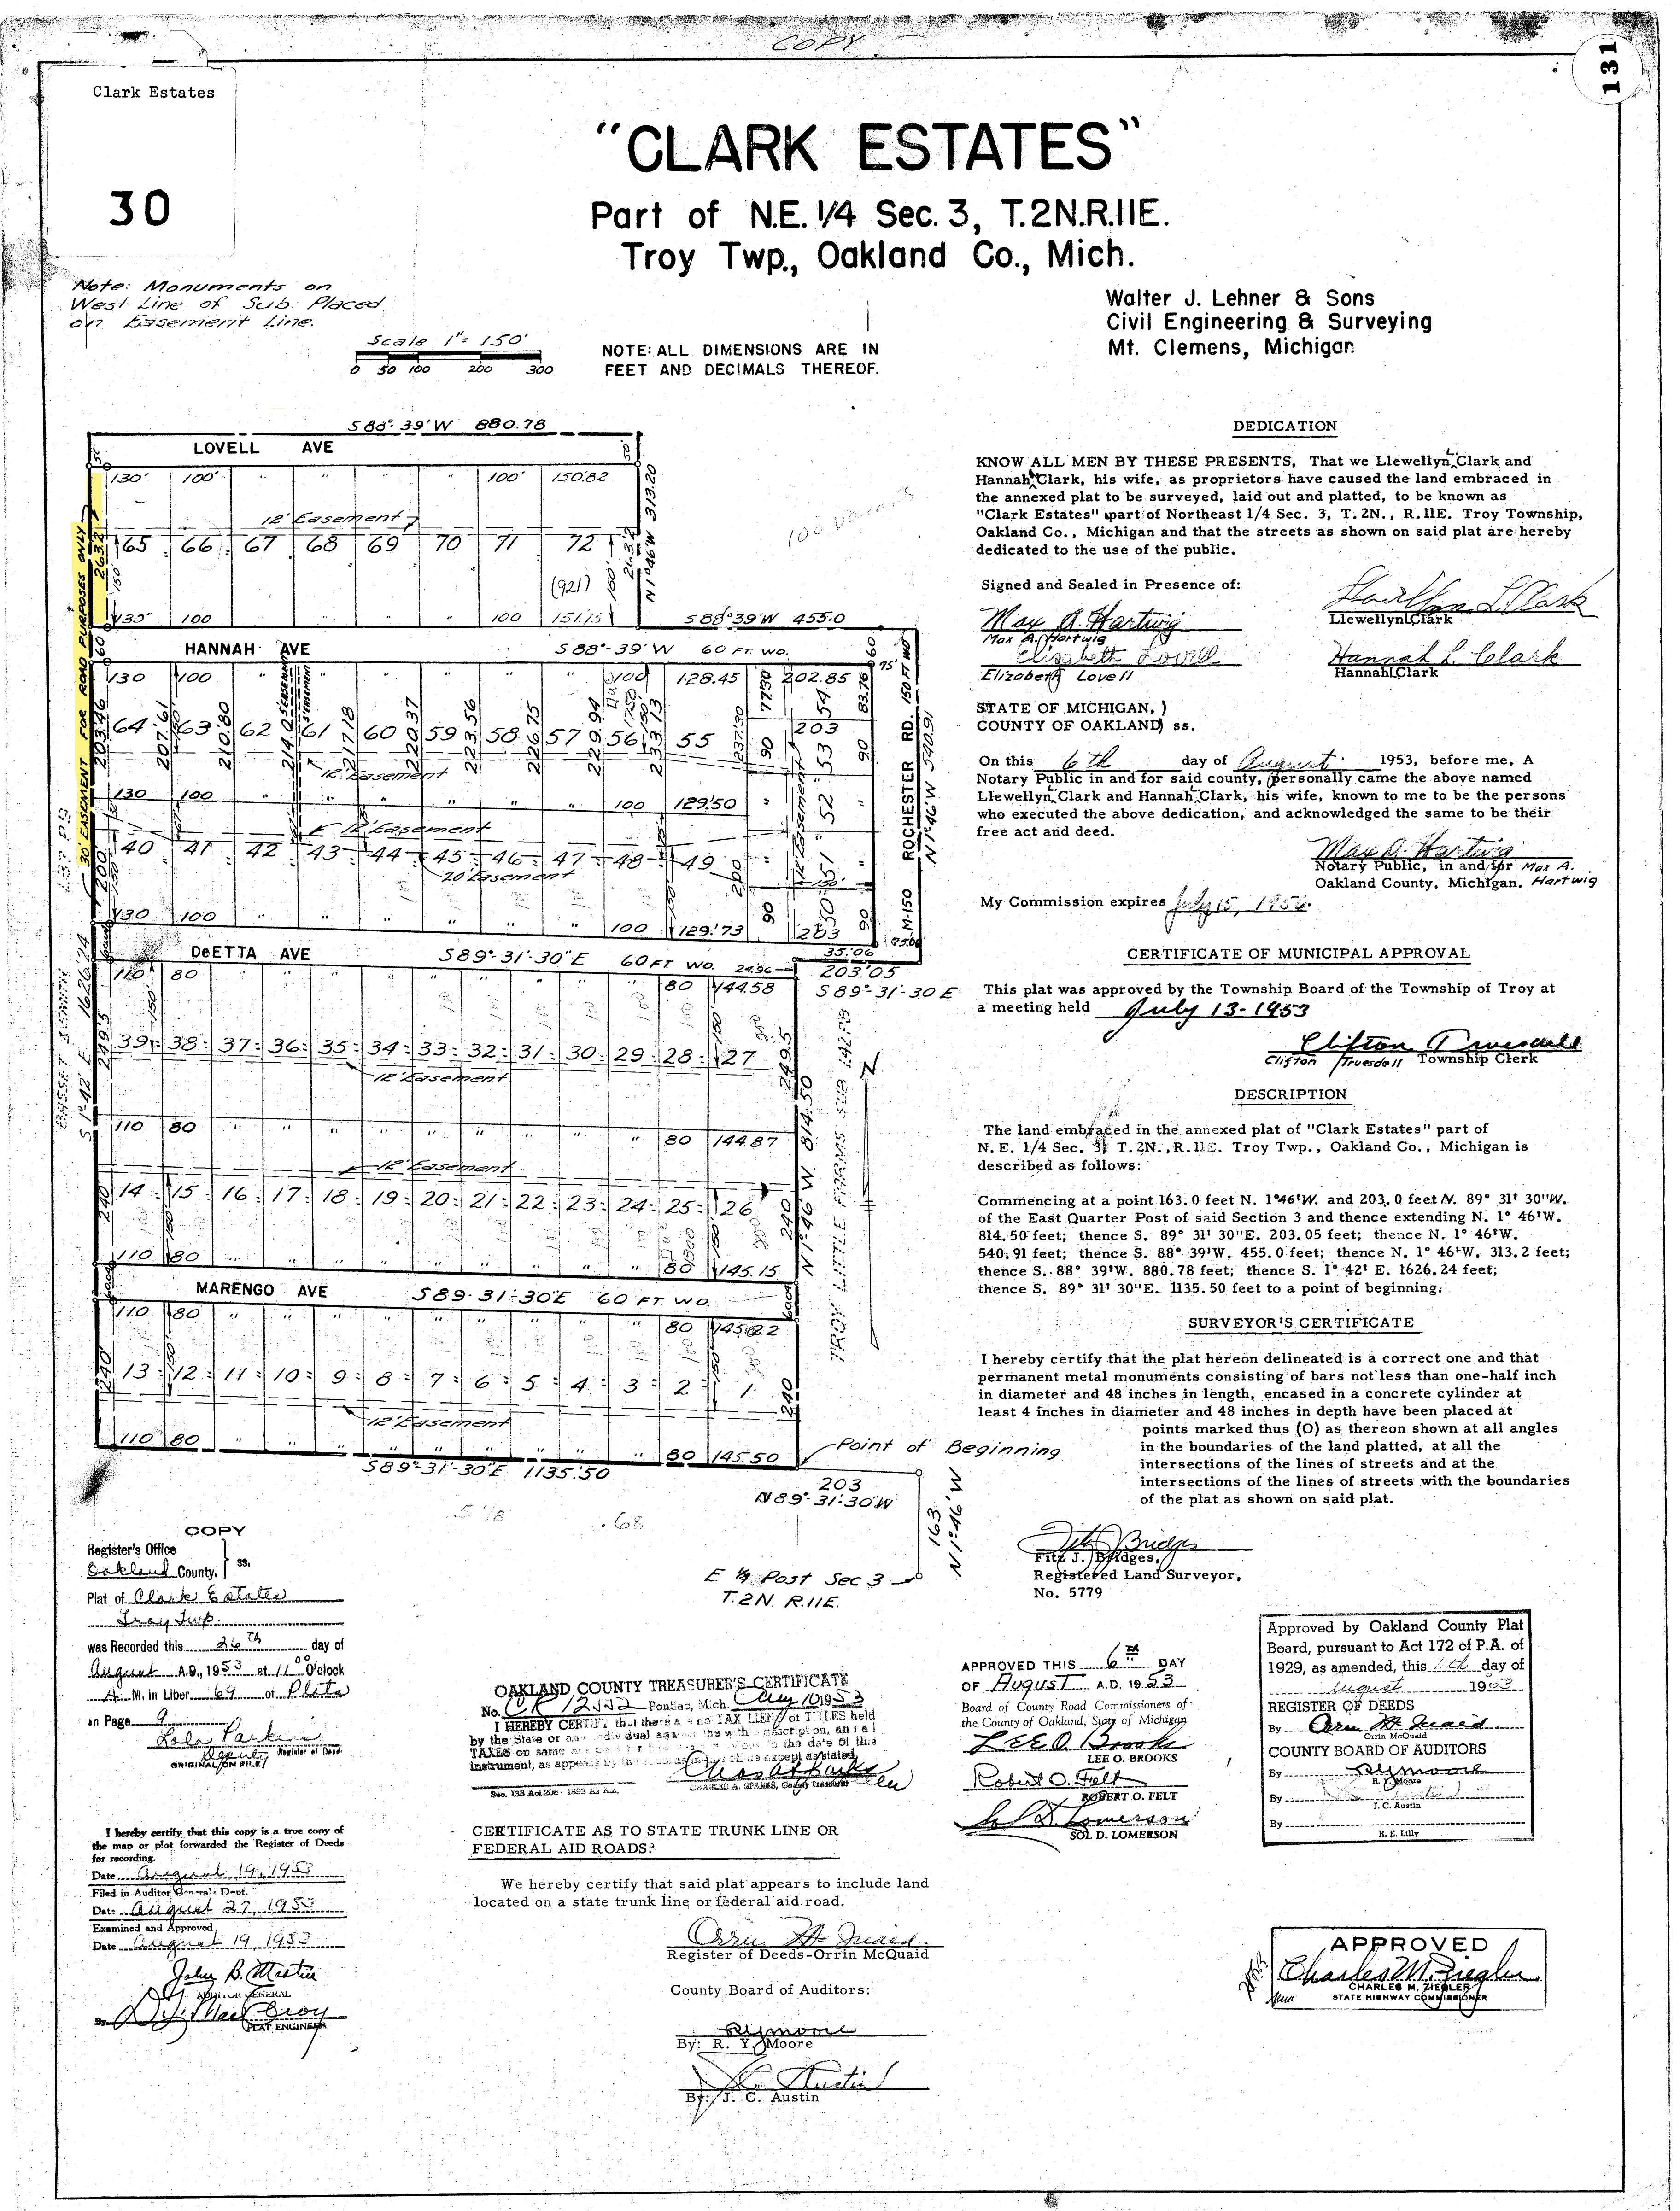 COPY
131
Clark Estates
30
"CLARK ESTATES"
Part of N.E. 1/4 Sec. 3, T.2N.R.11E.
Troy Twp., Oakland Co., Mich.
Note: Monuments on
West Line of Sub. Placed
on Easement Line.
Scale 1"= 150'
0 50 100 200 300
NOTE: ALL DIMENSIONS ARE IN
FEET AND DECIMALS THEREOF.
Walter J. Lehner & Sons
Civil Engineering & Surveying
Mt. Clemens, Michigan
S 88° 39' W 880.78
LOVELL AVE
130' 100' " " " " 100' 150.82
12' Easement
65 66 67 68 69 70 71 72
(921)
N 1°46'W 313.20
130' 100 " " " " 100 151.15
S 88°39'W 455.0
30' EASEMENT FOR ROAD PURPOSES ONLY
HANNAH AVE S 88°-39' W 60 FT. WD.
130 100 " " " " " " 100 128.45 202.85
75'
203.46 207.61 210.80 214.0 217.18 220.37 223.56 226.75 229.94 233.13 237.30
64 63 62 61 60 59 58 57 56 55 54
203
53
12' Easement
130 100 " " " " " " 100 129.50
52
12' Easement
40 41 42 43 44 45 46 47 48 49 51
20' Easement
130 100 " " " " " " 100 129.73 203
50
M-150 ROCHESTER RD. 150 FT WD
N 1°46'W 540.91
DeETTA AVE S 89°-31'-30"E 60 FT WD. 24.96
35.06
203.05
S 89°-31'-30 E
110 80 " " " " " " " " " 80 144.58
39 38 37 36 35 34 33 32 31 30 29 28 27
12' Easement
110 80 " " " " " " " " " 80 144.87
12' Easement
14 15 16 17 18 19 20 21 22 23 24 25 26
110 80 " " " " " " " " " 80 145.15
S 1°-42' E 1626.24
N 1°-46' W 814.50
TROY LITTLE FARMS SUB
N
MARENGO AVE S 89°-31'-30"E 60 FT. WD.
110 80 " " " " " " " " " 80 145.22
13 12 11 10 9 8 7 6 5 4 3 2 1
12' Easement
110 80 " " " " " " " " " 80 145.50
S 89°-31'-30"E 1135.50
Point of Beginning
203
N 89°-31'-30"W
163
N 1°46' W
E 1/4 Post Sec 3
T. 2N. R.11E.
.68
DEDICATION
KNOW ALL MEN BY THESE PRESENTS, That we Llewellyn L. Clark and
Hannah L. Clark, his wife, as proprietors have caused the land embraced in
the annexed plat to be surveyed, laid out and platted, to be known as
"Clark Estates" part of Northeast 1/4 Sec. 3, T. 2N., R. 11E. Troy Township,
Oakland Co., Michigan and that the streets as shown on said plat are hereby
dedicated to the use of the public.
Signed and Sealed in Presence of:
Max A. Hartwig
Max A. Hartwig
Elizabeth Lovell
Elizabeth Lovell
Llewellyn L. Clark
Llewellyn L. Clark
Hannah L. Clark
Hannah L. Clark
STATE OF MICHIGAN, )
COUNTY OF OAKLAND) ss.
On this 6th day of August 1953, before me, A
Notary Public in and for said county, personally came the above named
Llewellyn L. Clark and Hannah L. Clark, his wife, known to me to be the persons
who executed the above dedication, and acknowledged the same to be their
free act and deed.
Max A. Hartwig
Notary Public, in and for Max A.
Oakland County, Michigan. Hartwig
My Commission expires July 15, 1956.
CERTIFICATE OF MUNICIPAL APPROVAL
This plat was approved by the Township Board of the Township of Troy at
a meeting held July 13 - 1953
Clifton Truesdell
Clifton Truesdell Township Clerk
DESCRIPTION
The land embraced in the annexed plat of "Clark Estates" part of
N. E. 1/4 Sec. 3, T. 2N., R. 11E. Troy Twp., Oakland Co., Michigan is
described as follows:
Commencing at a point 163.0 feet N. 1°46'W. and 203.0 feet N. 89° 31' 30"W.
of the East Quarter Post of said Section 3 and thence extending N. 1° 46'W.
814.50 feet; thence S. 89° 31' 30"E. 203.05 feet; thence N. 1° 46'W.
540.91 feet; thence S. 88° 39'W. 455.0 feet; thence N. 1° 46'W. 313.2 feet;
thence S. 88° 39'W. 880.78 feet; thence S. 1° 42' E. 1626.24 feet;
thence S. 89° 31' 30"E. 1135.50 feet to a point of beginning.
SURVEYOR'S CERTIFICATE
I hereby certify that the plat hereon delineated is a correct one and that
permanent metal monuments consisting of bars not less than one-half inch
in diameter and 48 inches in length, encased in a concrete cylinder at
least 4 inches in diameter and 48 inches in depth have been placed at
points marked thus (O) as thereon shown at all angles
in the boundaries of the land platted, at all the
intersections of the lines of streets and at the
intersections of the lines of streets with the boundaries
of the plat as shown on said plat.
Fitz J. Bridges,
Registered Land Surveyor,
No. 5779
COPY
Register's Office
Oakland County. } ss.
Plat of Clark Estates
Troy Twp.
was Recorded this 26th day of
August A.D., 1953 at 11:00 O'clock
A. M. in Liber 69 of Plats
on Page 9
Lola Parkins
Deputy Register of Deeds
ORIGINAL ON FILE
I hereby certify that this copy is a true copy of
the map or plot forwarded the Register of Deeds
for recording.
Date August 19, 1953
Filed in Auditor General's Dept.
Date August 27, 1953
Examined and Approved
Date August 19, 1953
John B. Martin
AUDITOR GENERAL
By
PLAT ENGINEER
OAKLAND COUNTY TREASURER'S CERTIFICATE
No. Pontiac, Mich. Aug 10 1953
I HEREBY CERTIFY that there are no TAX LIENS or TITLES held
by the State or any individual against the within description, and all
TAXES on same are paid for years previous to the date of this
instrument, as appears by the records in this office except as stated.
CHARLES A. SPARKS, County Treasurer
Sec. 135 Act 206 - 1893 As Am.
CERTIFICATE AS TO STATE TRUNK LINE OR
FEDERAL AID ROADS:
We hereby certify that said plat appears to include land
located on a state trunk line or federal aid road.
Register of Deeds-Orrin McQuaid
County Board of Auditors:
By: R. Y. Moore
By: J. C. Austin
APPROVED THIS 6th DAY
OF AUGUST A.D. 1953
Board of County Road Commissioners of
the County of Oakland, State of Michigan
Lee O Brooks
LEE O. BROOKS
Robert O. Felt
ROBERT O. FELT
Sol D. Lomerson
SOL D. LOMERSON
Approved by Oakland County Plat
Board, pursuant to Act 172 of P.A. of
1929, as amended, this day of
August 1953
REGISTER OF DEEDS
By Orrin McQuaid
Orrin McQuaid
COUNTY BOARD OF AUDITORS
By
R. Y. Moore
By
J. C. Austin
By
R. E. Lilly
APPROVED
Charles M. Ziegler
CHARLES M. ZIEGLER
STATE HIGHWAY COMMISSIONER